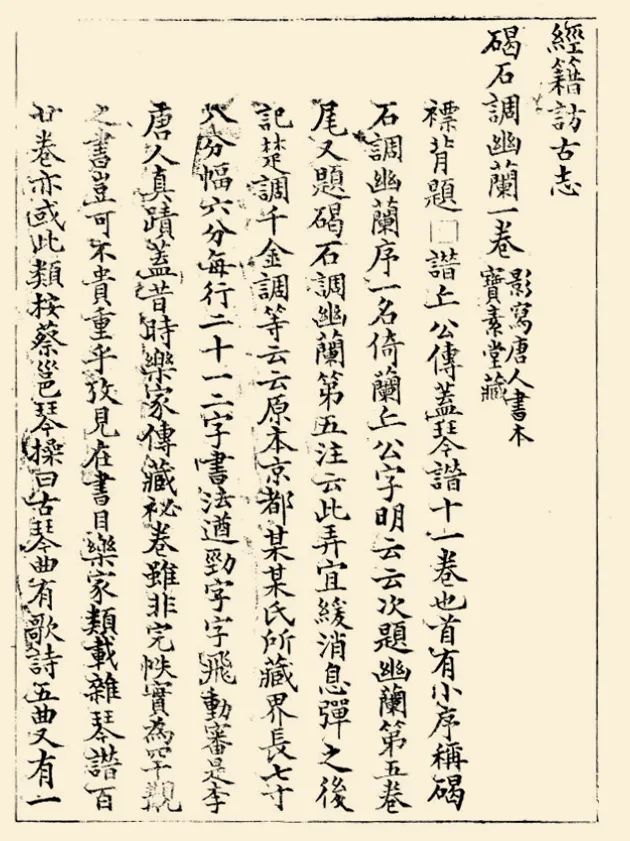 經籍訪古志
碣石調幽蘭一卷 影寫唐人書本
寶素堂藏
褾背題□譜丘公傳蓋琴譜十一卷也首有小序稱碣
石調幽蘭序一名倚蘭丘公字明云云次題幽蘭第五卷
尾又題碣石調幽蘭第五注云此弄宜緩消息彈之後
記楚調千金調等云云原本京都某某氏所藏界長七寸
八分幅六分每行二十一二字書法遒勁字字飛動審是李
唐人真蹟蓋昔時樂家傳藏祕卷雖非完帙實為罕覯
之書豈可不貴重乎攷見在書目樂家類載雜琴譜百
廿卷亦或此類按蔡邕琴操曰古琴曲有歌詩五曲又有一